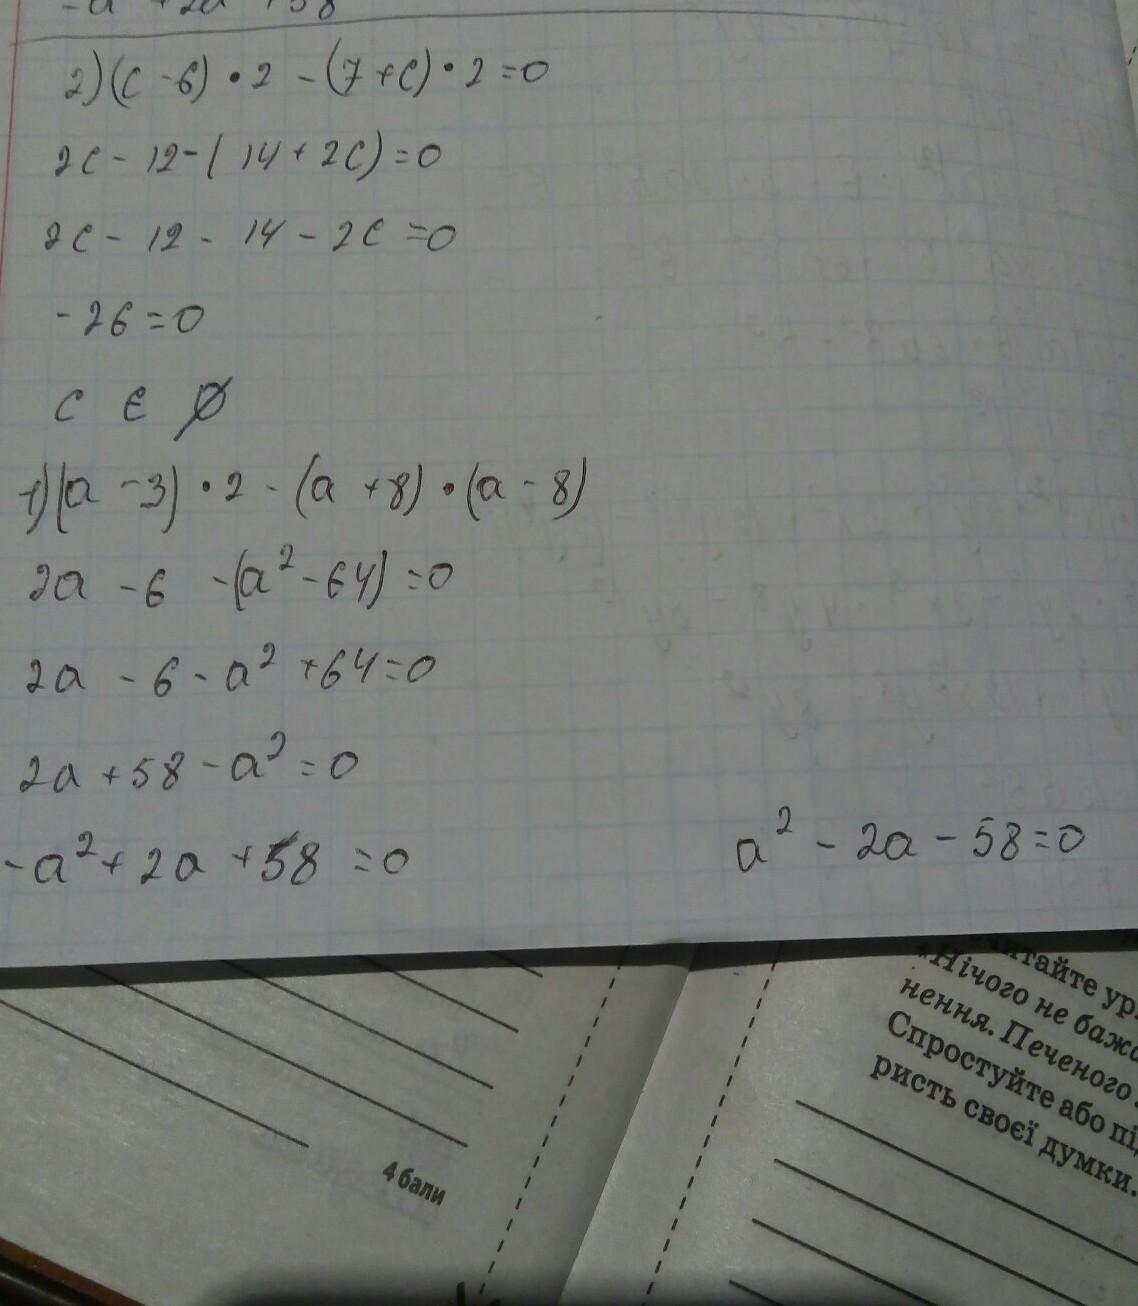 -a² +2a +58
2) (c - 6) • 2 - (7 + c) • 2 = 0
2c - 12 - ( 14 + 2c) = 0
2c - 12 - 14 - 2c = 0
- 26 = 0
c ∈ ∅
1) (a - 3) • 2 - (a + 8) • (a - 8)
2a - 6 - (a² - 64) = 0
2a - 6 - a² + 64 = 0
2a + 58 - a² = 0
-a² + 2a + 58 = 0
a² - 2a - 58 = 0
«Нічого не
нення. Печеного
Спростуйте або
ристь своєї думки.
4 бали